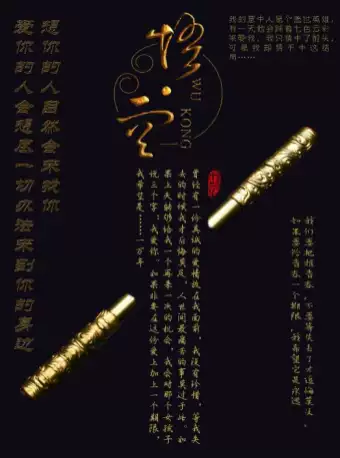 想你的人自然会来找你
爱你的人会想尽一切办法来到你的身边
悟空
WU KONG
我的意中人是个盖世英雄，
有一天他会踩着七色云彩
来娶我，我只猜中了前头，
可是我却猜不中这结
局……
曾经有一份真诚的爱情放在我面前，我没有珍惜，等我失
去的时候我才后悔莫及，人世间最痛苦的事莫过于此。如
果上天能够给我一个再来一次的机会，我会对那个女孩子
说三个字：我爱你。如果非要在这份爱上加上一个期限，
我希望是……一万年
我们要把握青春，不要等失去了才追悔莫及。
如果要给青春一个期限，我希望它是永远